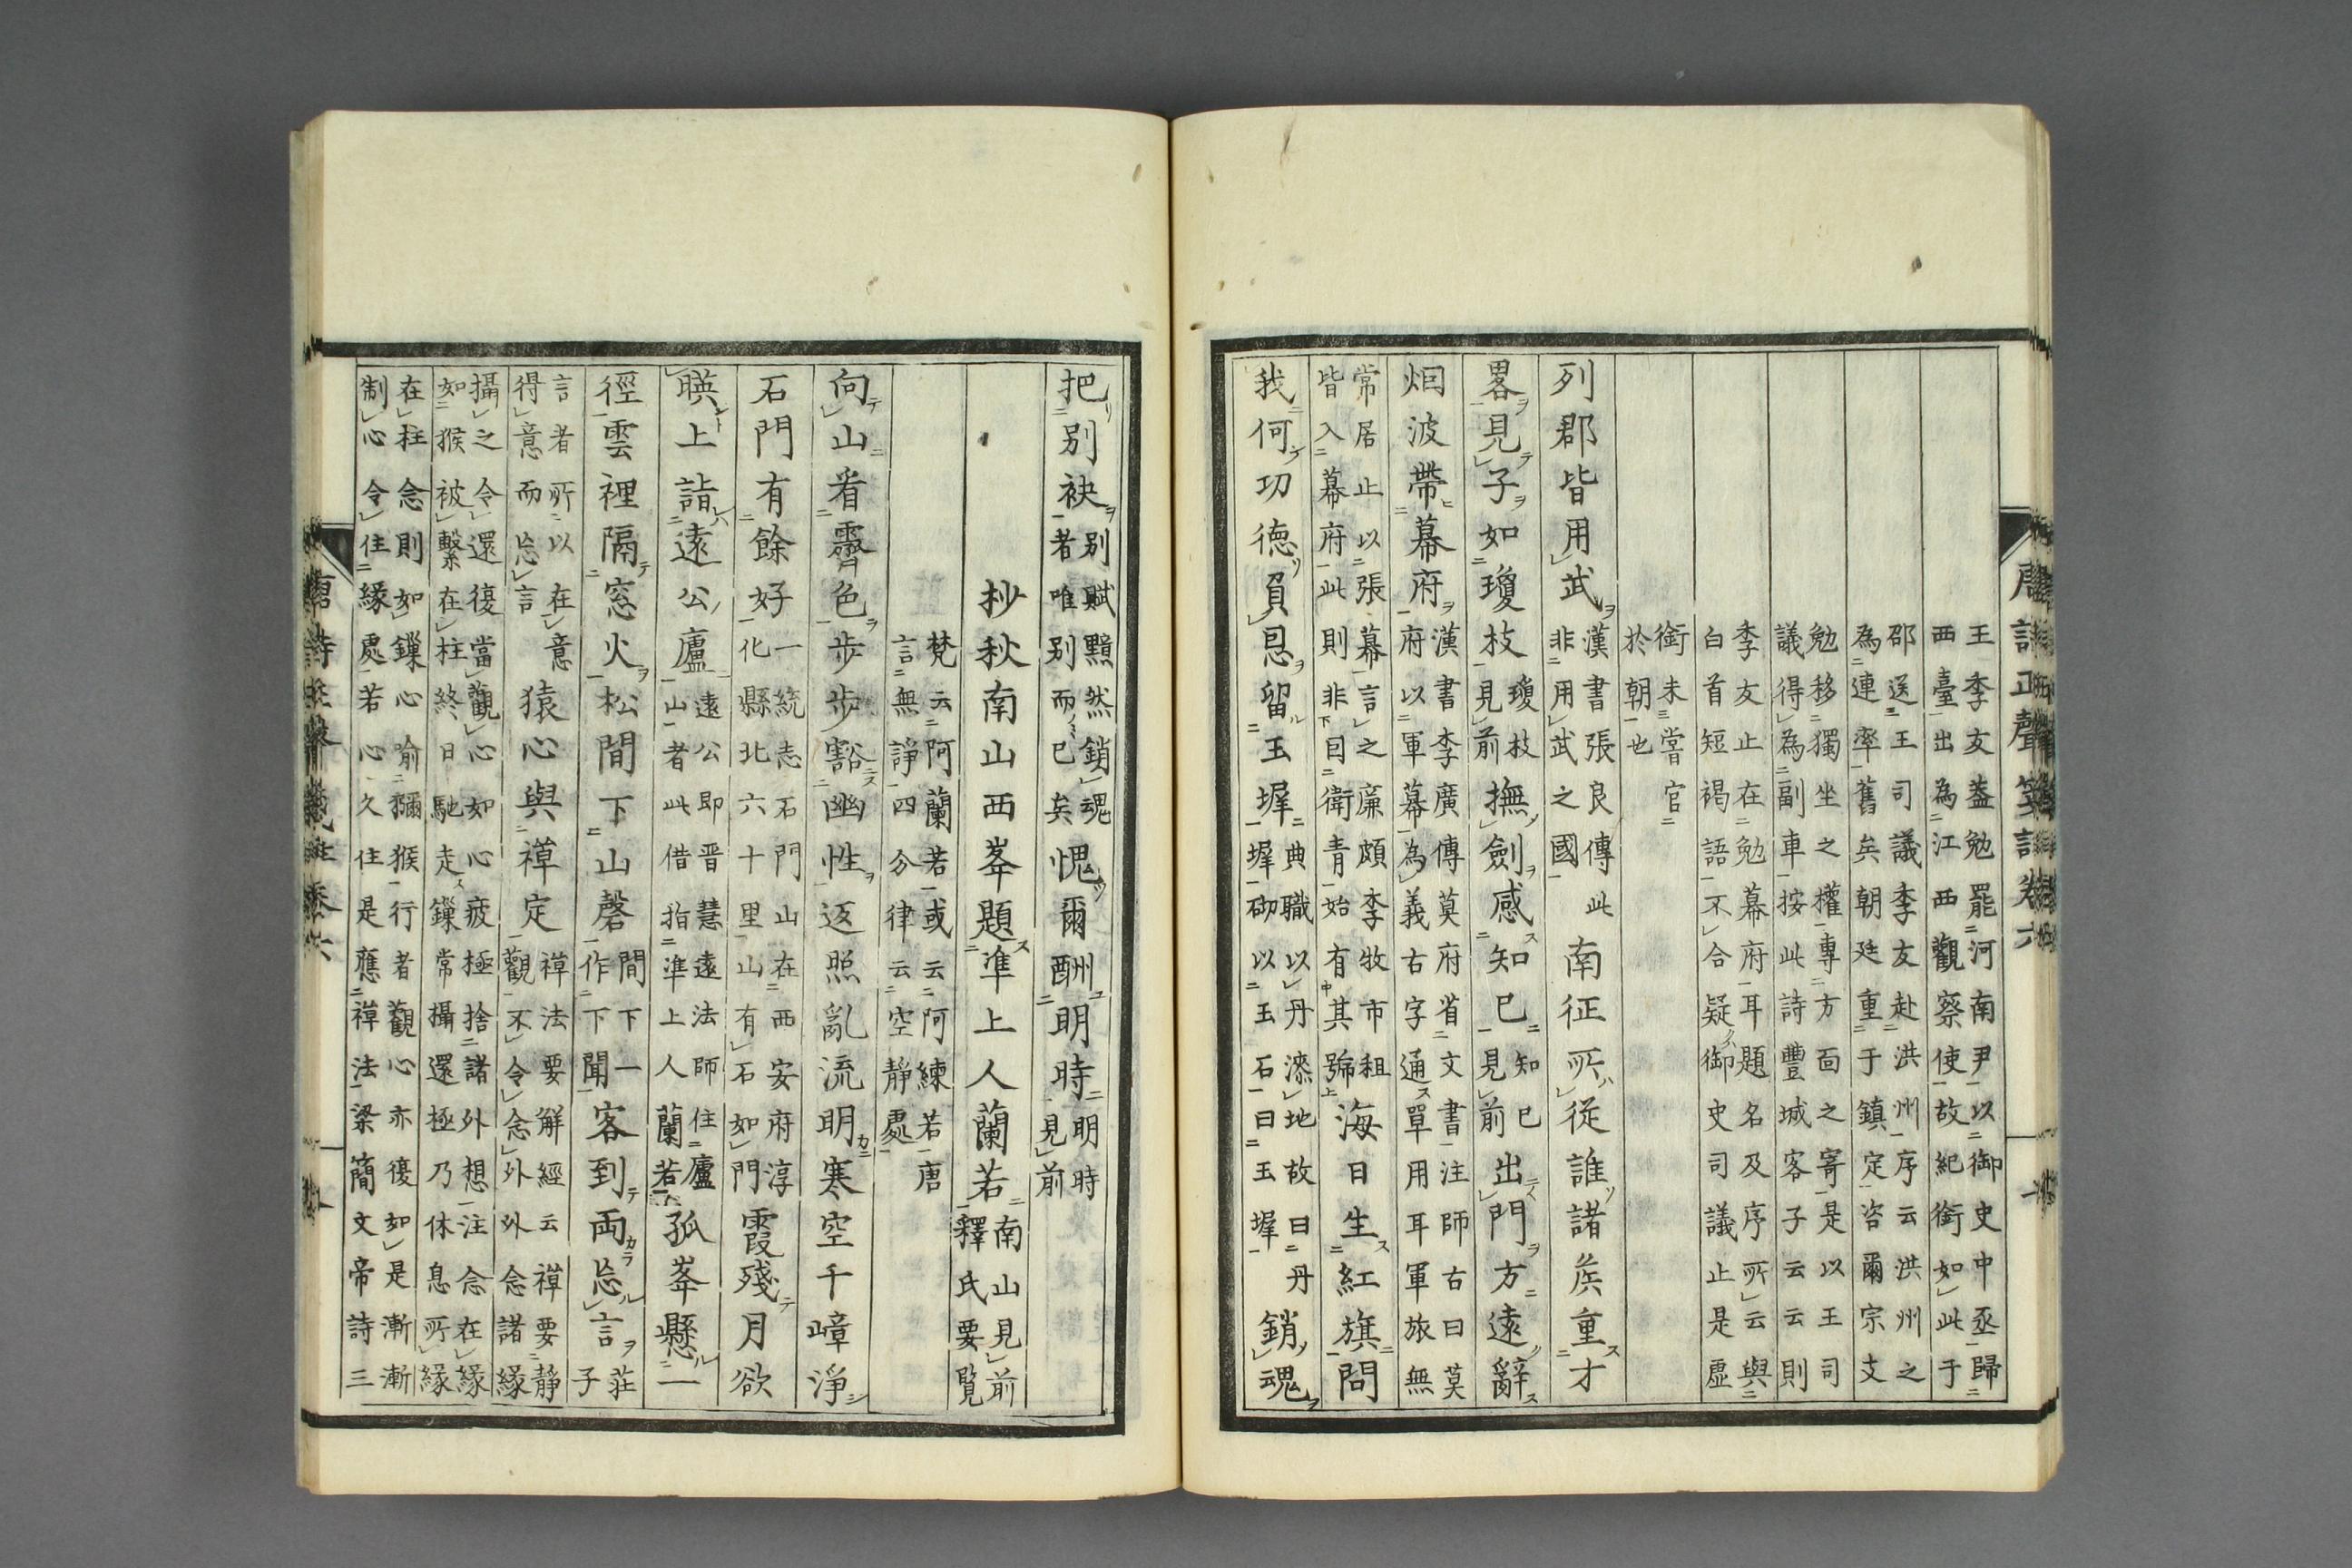 王李友蓋勉罷河南尹以御史中丞歸
西臺出為江西觀察使故紀銜如此于
邵送王司議李友赴洪州序云洪州之
為連率舊矣朝廷重于鎮定咨爾宗支
勉移獨坐之權專方面之寄是以王司
議得為副車按此詩豐城客子云云則
李友止在勉幕府耳題名及序所云與
白首短褐語不合疑御史司議止是虛
銜未嘗官
於朝也
列郡皆用武 漢書張良傳此非用武之國 南征所從誰諸侯重才
畧見子如瓊枝 瓊枝見前 撫劍感知己 知己見前 出門方遠辭
烟波帶幕府 漢書李廣傳莫府省文書注師古曰莫府以軍幕為義古字通單用耳軍旅無
常居止以張幕言之廉頗李牧市租皆入幕府此則非囙衛青始有其號 海日生紅旗問
我何功德負恩留玉墀 典職以丹漆地故曰丹墀墀砌以玉石曰玉墀 銷魂
把別袂 別賦黯然銷魂者唯別而已矣 愧爾酬明時 明時見前
抄秋南山西峯題準上人蘭若 南山見前釋氏要覧
梵云阿蘭若或云阿練若唐
言無諍四分律云空靜處
向山看霽色步步豁幽性返照亂流明寒空千嶂淨
石門有餘好 一統志石門山在西安府淳化縣北六十里山有石如門 霞殘月欲
暎上詣遠公廬 遠公即晋慧遠法師住廬山者此借指準上人 蘭若孤峯懸一
徑雲裡隔窓火松間下山磬 間下一作下聞 客到兩忘言 莊子
言者所以在意得意而忘言 猿心與禪定 禪法要解經云禪要靜觀不令念外外念諸緣
攝之令還復當觀心如心疲極捨諸外想注念在緣
如猴被繫在柱終日馳走鏁常攝還極乃休息所緣
在柱念則如鏁心喻獼猴行者觀心亦復如是漸漸
制心令住緣處若心久住是應禪法梁簡文帝詩三